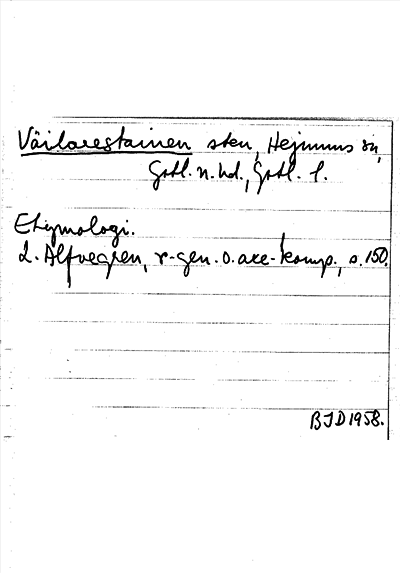 Väilarestainen sten, Hejnums sn,
Gotl. n. hd., Gotl. l.
Etymologi.
L. Alfvegren, r-gen. o. ace-komp., s. 150.
BJD 1958.